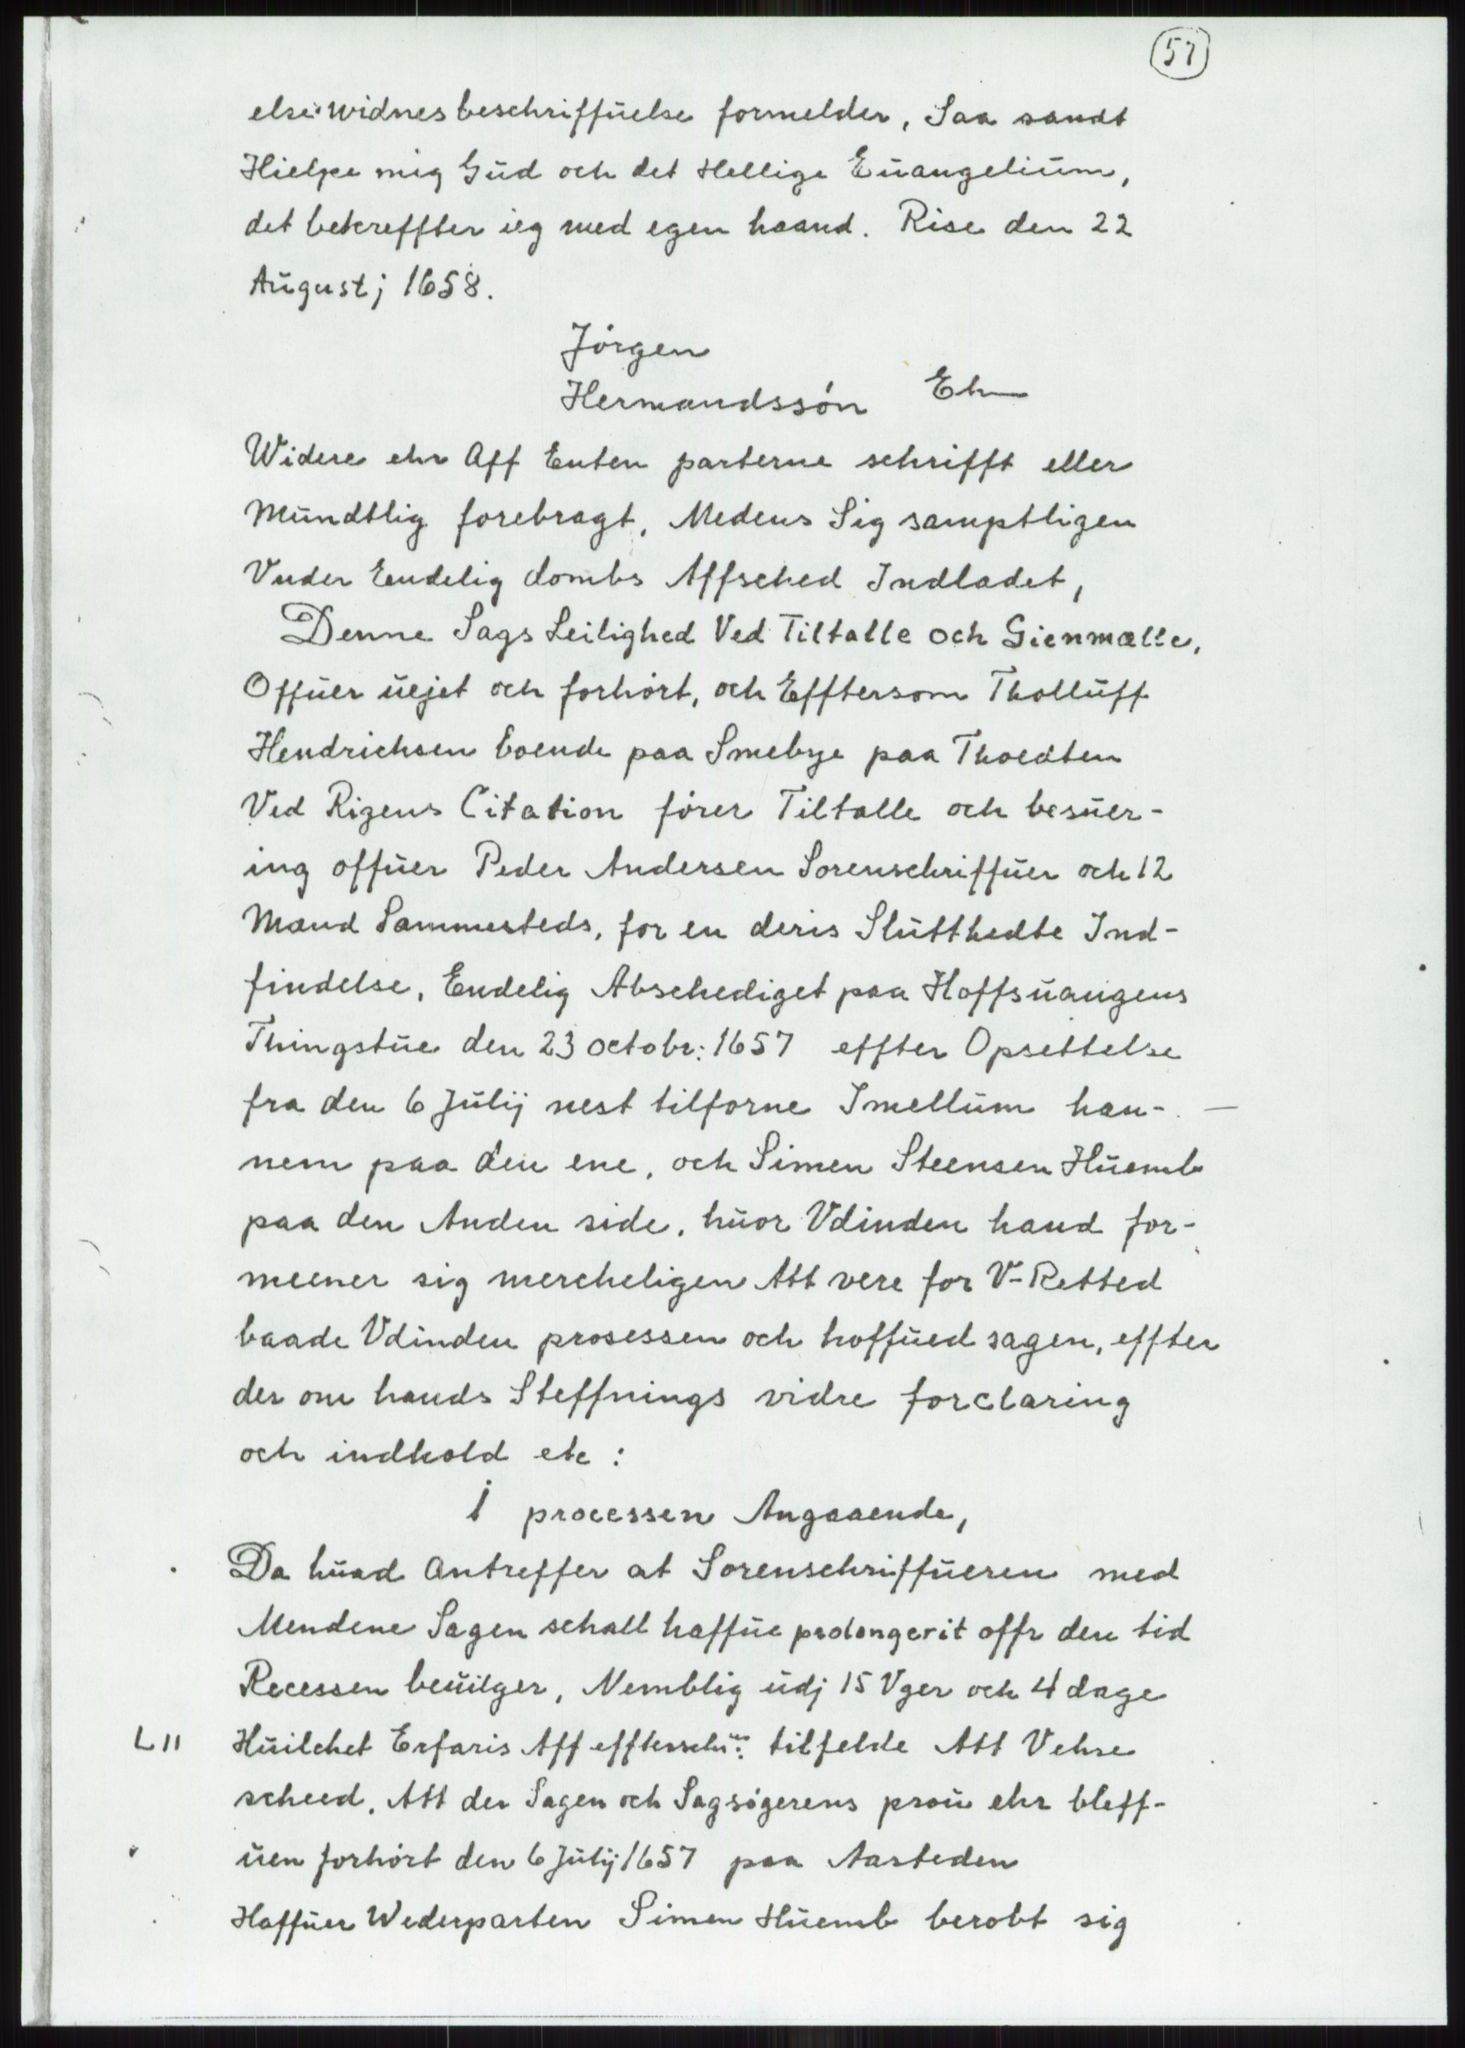 57
else widnesbeschriffuelse formelder, Saa sandt
Hielpe mig Gud och det Hellige Euangelium,
det bekreffter ieg med egen haand. Rise den 22
Augustj 1658.
Jörgen
Hermandssön Eh
Widere ehr Aff Enten parterne schrifft eller
Mundtlig forebragt, Medens Sig samptligen
Vnder Endelig dombs Affsched Indladet,
Denne Sags Leilighed Ved Tiltalle och Gienmælle,
Offuer uejet och forhört, och Efftersom Tholluff
Hendrichsen boende paa Smebye paa Thoedten
Ved Rigens Citation förer Tiltalle och besuer-
ing offuer Peder Andersen Sorenschriffuer och 12
Mænd Sammesteds, for en deris Slutthedte Ind-
findelse, Endelig Abschediget paa Hoffsuangens
Thingstue den 23 octobr: 1657 effter Opsettelse
fra den 6 Julij nest tilforne Imellum han-
nem paa den ene, och Simen Steensen Huemb
paa den Anden side, huor Vdinden hand for-
meener sig mercheligen Att vere for V-Retted
baade Vdinden prosessen och hoffued sagen, effter
der om hands Steffnings vidre forclaring
och indhold etc:
I processen Angaaende,
Da huad Antreffer at Sorenschriffueren med
Mendene Sagen schall haffue prolongerit offr den tid
Recessen beuilger, Nemblig udj 15 Vger och 4 dage
L 11 Huilchet Erfaris Aff effterschr: tilfelde Att Vehre
scheed, Att der Sagen och Sagsögerens prou ehr bleff-
uen forhört den 6 Julij 1657 paa Aasteden
Haffuer Wederparten Simen Huemb berobt sig